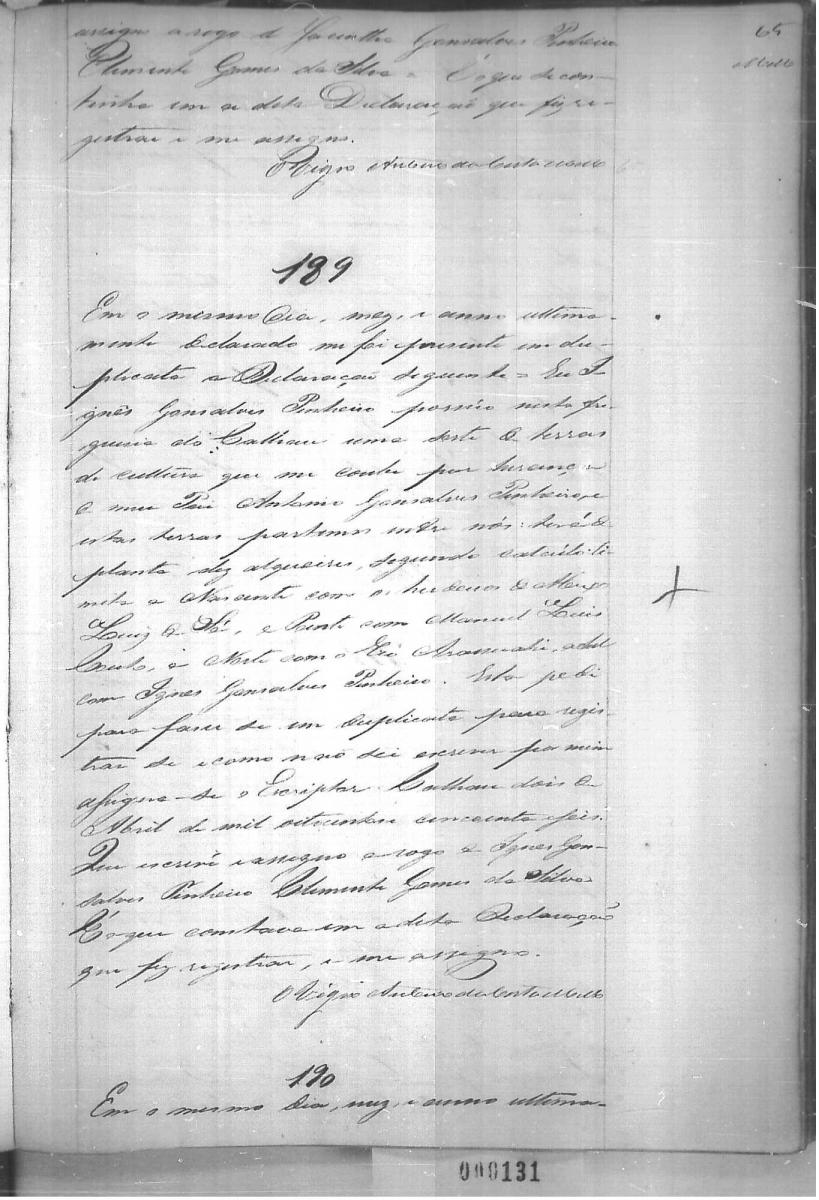 65
Mello
assigno a rogo de Jacintha Gonsalves Pinheiro
Clemente Gomes da Silva = É o que se con-
tinha em a dita Declaração que fiz re-
gistrar e me assigno.
O Vigro Antero da Costa Mello
189
Em o mesmo dia, mez, e anno ultima-
mente declarado me foi presente em du-
plicata a Declaração seguinte = Eu I-
gnês Gonsalves Pinheiro possúo nesta fre-
guesia do Calhau uma sorte de terras
de cultura que me coube por herança de
o meu Pai Antonio Gonsalves Pinheiro, e
estas terras partemos entre nós: terá de
planta dez alqueires, segundo calculo: li-
mita a Nascente com os herdeiros de
Luiz de Sá, e Poente com Manuel Luis
Couto, e Norte com o Rio Arassuahi, e Sul
com Ignes Gonsalves Pinheiro. Esta pedi
para faser se em duplicata para regis-
trar se e como não sei escrever por mim
assigna-se o Escriptor. Calhau dois de
Abril de mil oitocentos cincoenta e seis.
Que escrevi e assigno a rogo de Ignes Gon-
salves Pinheiro Clemente Gomes da Silva
É o que constava em a dita Declaração
que fiz registrar, e me assigno.
O Vigro Antero da Costa Mello
190
Em o mesmo dia, mez, e anno ultima-
000131